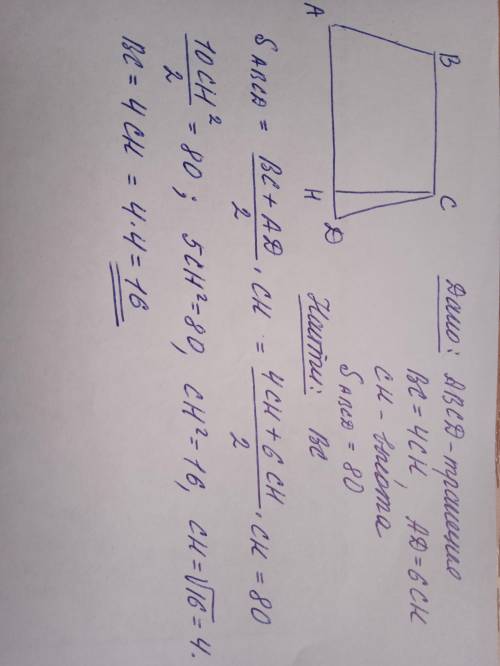 A
B
C
H
D
Дано: ABCD-трапеция
BC = 4CH, AD = 6CH
CH - высота
S ABCD = 80
Найти: BC
S ABCD = (BC + AD)/2 · CH = (4CH + 6CH)/2 · CH = 80
10CH²/2 = 80; 5CH² = 80, CH² = 16, CH = √16 = 4.
BC = 4CH = 4·4 = 16